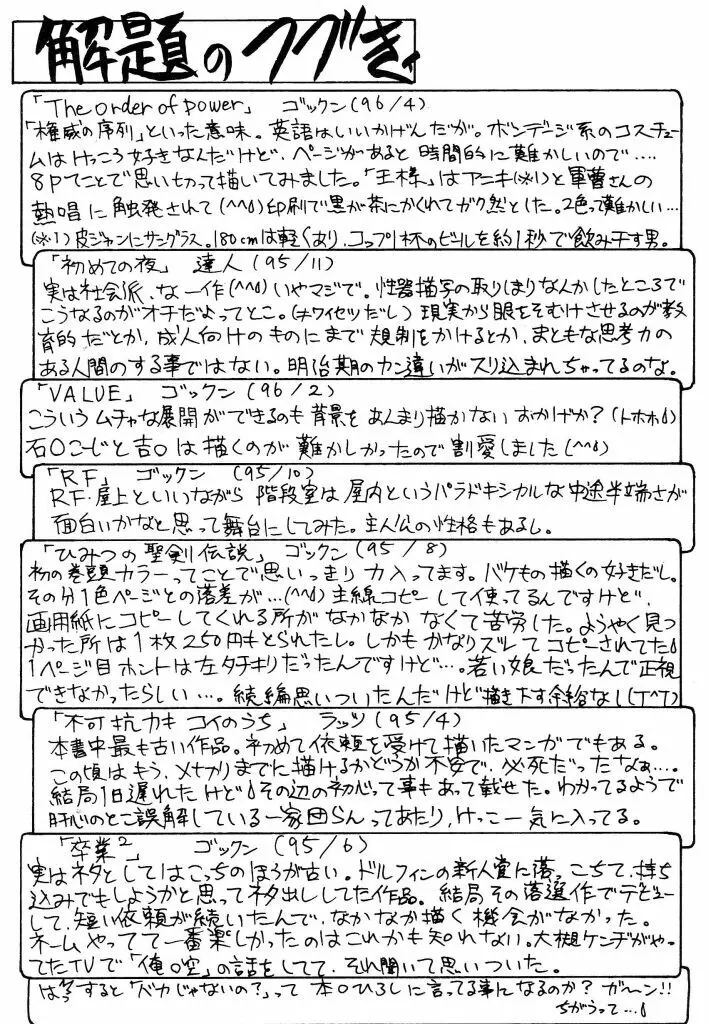 解題のつづき
「The order of power」 ゴックン(96/4)
「権威の序列」といった意味。英語はいいかげんだが。ボンデージ系のコスチュー
ムはけっこう好きなんだけど、ページがあると時間的に難かしいので....
8Pてことで思い切って描いてみました。「王様」はアニキ(※1)と軍曹さんの
熱唱に触発されて(^^;)印刷で黒が茶にかくれてガク然とした。2色って難かしい...
(※1)皮ジャンにサングラス。180cmは軽くあり、コップ1杯のビールを約1秒で飲み干す男。
「初めての夜」 達人(95/11)
実は社会派、な一作(^^;)いやマジで。性器描写の取りしまりなんかしたところで
こうなるのがオチだよってとこ。(チワイセツだし)現実から眼をそむけさせるのが教
育的だとか、成人向けのものにまで規制をかけるとか、まともな思考力の
ある人間のする事ではない。明治期のカン違いがスリ込まれちゃってるのな。
「VALUE」 ゴックン(96/2)
こういうムチャな展開ができるのも背景をあんまり描かないおかげか?(トホホ)
石○こーじと吉○は描くのが難かしかったので割愛しました(^^;)
「RF」 ゴックン (95/10)
RF・屋上といいながら階段室は屋内というパラドキシカルな中途半端さが
面白いかなと思って舞台にしてみた。主人公の性格もあるし。
「ひみつの聖剣伝説」 ゴックン(95/8)
初の巻頭カラーってことで思いっきり力入ってます。バケもの描くの好きだし。
その分1色ページとの落差が...(^^;)主線コピーして使ってるんですけど、
画用紙にコピーしてくれる所がなかなかなくて苦労した。ようやく見つ
かった所は1枚250円もとられたし。しかもかなりズレてコピーされてた
1ページ目ホントは左タチキリだったんですけど...。若い娘だったんで正視
できなかったらしい...。続編思いついたんだけど描き下す余裕なし(T^T)
「不可抗力もコイのうち」 ラッツ(95/4)
本書中最も古い作品。初めて依頼を受けて描いたマンガでもある。
この頃はもう、〆切りまでに描けるかどうか不安で、必死だったなぁ...。
結局1日遅れたけどその辺の初心って事もあって載せた。わかってるようで
肝心のとこ誤解している一家団らんってあたり、けっこー気に入ってる。
「卒業2」 ゴックン(95/6)
実はネタとしてはこっちのほうが古い。ドルフィンの新人賞に落っこちて、持ち
込みでもしようかと思ってネタ出ししてた作品。結局その落選作でデビュー
して、短い依頼が続いたんで、なかなか描く機会がなかった。
ネームやってて一番楽しかったのはこれかも知れない。大槻ケンヂがやっ
てたTVで「俺○空」の話をしてて、それ聞いて思いついた。
はっすると「バカじゃないの?」って本○ひろしに言ってる事になるのか?ガーン!!
ちがうって...